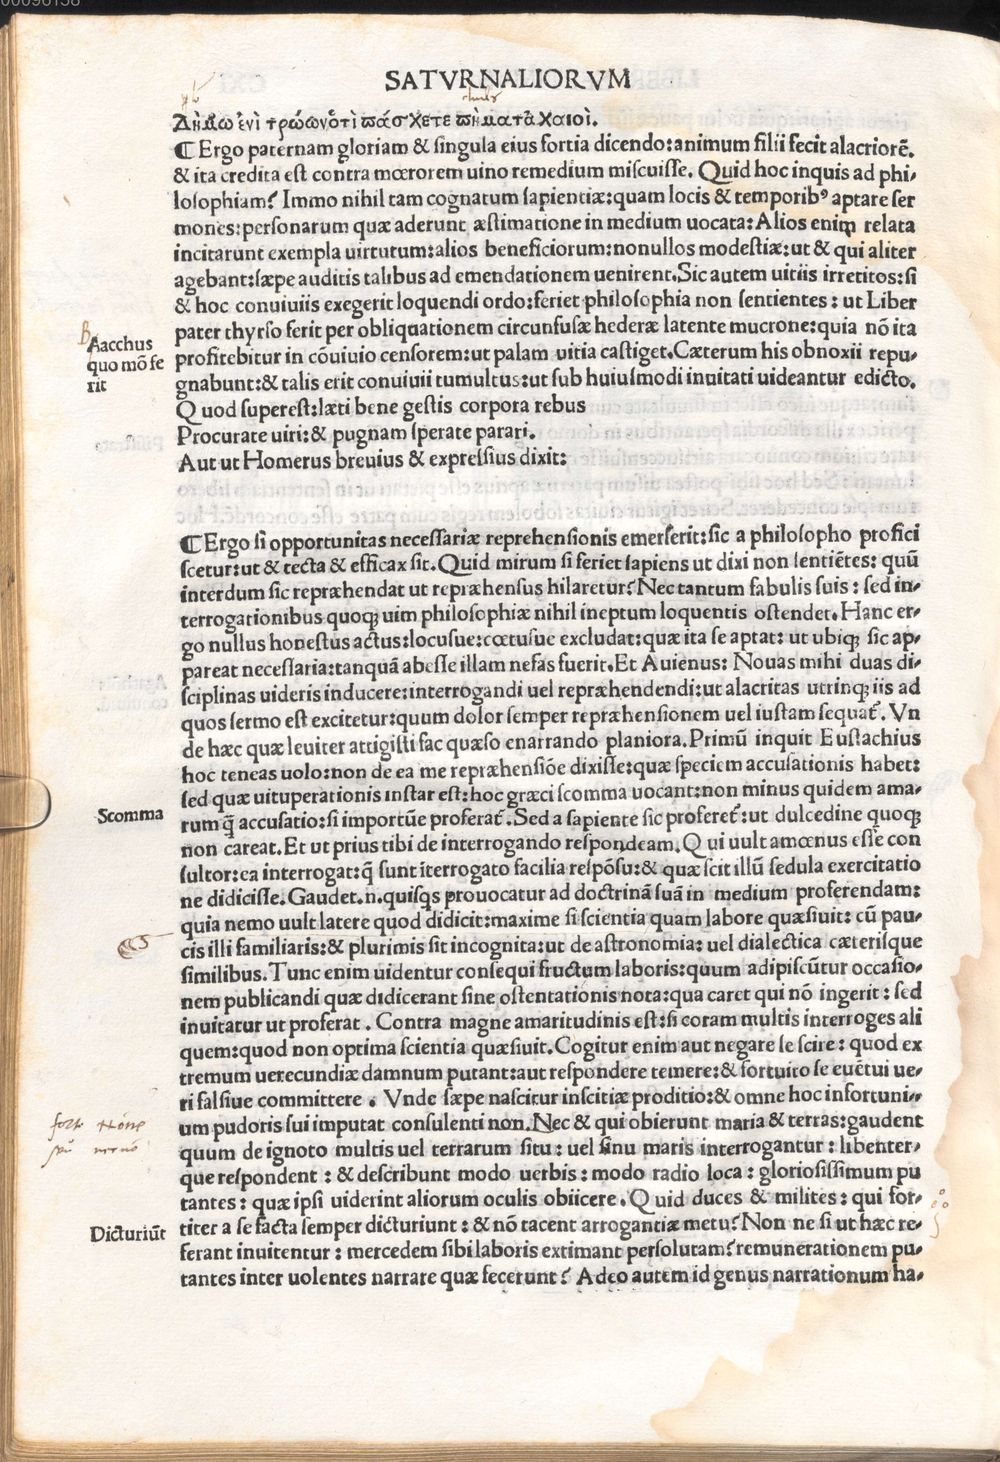 SATVRNALIORVM
Δήμω ἐνὶ τρώων ὅτι πάσχετε πήματα χαιοὶ.
¶ Ergo paternam gloriam & singula eius fortia dicendo: animum filii fecit alacriorē.
& ita credita est contra mœrorem uino remedium miscuisse. Quid hoc inquis ad phi-
losophiam? Immo nihil tam cognatum sapientiæ: quam locis & temporibꝰ aptare ser
mones: personarum quæ aderunt æstimatione in medium uocata: Alios enim relata
incitarunt exempla uirtutum: alios beneficiorum: nonullos modestiæ: ut & qui aliter
agebant: sæpe auditis talibus ad emendationem uenirent. Sic autem uitiis irretitos: si
& hoc conuiuiis exegerit loquendi ordo: feriet philosophia non sentientes: ut Liber
pater thyrso ferit per obliquationem circunfusæ hederæ latente mucrone: quia nō ita
profitebitur in cōuiuio censorem: ut palam uitia castiget. Cæterum his obnoxii repu-
gnabunt: & talis erit conuiuii tumultus: ut sub huiusmodi inuitati uideantur edicto.
Quod superest: læti bene gestis corpora rebus
Procurate uiri: & pugnam sperate parari.
Aut ut Homerus breuius & expressius dixit:
Bacchus
quo mō fe
rit
¶ Ergo si opportunitas necessariæ reprehensionis emerserit: sic a philosopho profici
scetur: ut & tecta & efficax sit. Quid mirum si feriet sapiens ut dixi non sentiētes: quū
interdum sic repræhendat ut repræhensus hilaretur? Nec tantum fabulis suis: sed in-
terrogationibus quoqꝫ uim philosophiæ nihil ineptum loquentis ostendet. Hanc er-
go nullus honestus actus: locusue: cœtusue excludat: quæ ita se aptat: ut ubiqꝫ sic ap-
pareat necessaria: tanquā abesse illam nefas fuerit. Et Auienus: Nouas mihi duas di-
sciplinas uideris inducere: interrogandi uel repræhendendi: ut alacritas utrinqꝫ iis ad
quos sermo est excitetur: quum dolor semper repræhensionem uel iustam sequat̄. Vn
de hæc quæ leuiter attigisti fac quæso enarrando planiora. Primū inquit Eustachius
hoc teneas uolo: non de ea me repræhensiōe dixisse: quæ speciem accusationis habet:
sed quæ uituperationis instar est: hoc græci scomma uocant: non minus quidem ama-
rum q̄ accusatio: si importūe proferat̄. Sed a sapiente sic proferet̄: ut dulcedine quoqꝫ
non careat. Et ut prius tibi de interrogando respondeam. Qui uult amœnus esse con
sultor: ea interrogat: q̄ sunt īterrogato facilia respōsu: & quæ scit illū sedula exercitatio
ne didicisse. Gaudet .n. quisqs prouocatur ad doctrinā suā in medium proferendam:
quia nemo uult latere quod didicit: maxime si scientia quam labore quæsiuit: cū pau-
cis illi familiaris: & plurimis sit incognita: ut de astronomia: uel dialectica cæterisque
similibus. Tunc enim uidentur consequi fructum laboris: quum adipiscūtur occasio-
nem publicandi quæ didicerant sine ostentationis nota: qua caret qui nō ingerit: sed
inuitatur ut proferat. Contra magne amaritudinis est: si coram multis interroges ali
quem: quod non optima scientia quæsiuit. Cogitur enim aut negare se scire: quod ex
tremum uerecundiæ damnum putant: aut respondere temere: & fortuito se euētui ue-
ri falsiue committere. Vnde sæpe nascitur inscitiæ proditio: & omne hoc infortuni-
um pudoris sui imputat consulenti non. Nec & qui obierunt maria & terras: gaudent
quum de ignoto multis uel terrarum situ: uel sinu maris interrogantur: libenter-
que respondent: & describunt modo uerbis: modo radio loca: gloriosissimum pu
tantes: quæ ipsi uiderint aliorum oculis obiicere. Quid duces & milites: qui for-
titer a se facta semper dicturiunt: & nō tacent arrogantiæ metu? Non ne si ut hæc re-
ferant inuitentur: mercedem sibi laboris extimant persolutam? remunerationem pu-
tantes inter uolentes narrare quæ fecerunt? Adeo autem id genus narrationum ha-
Scomma
Dicturiūt